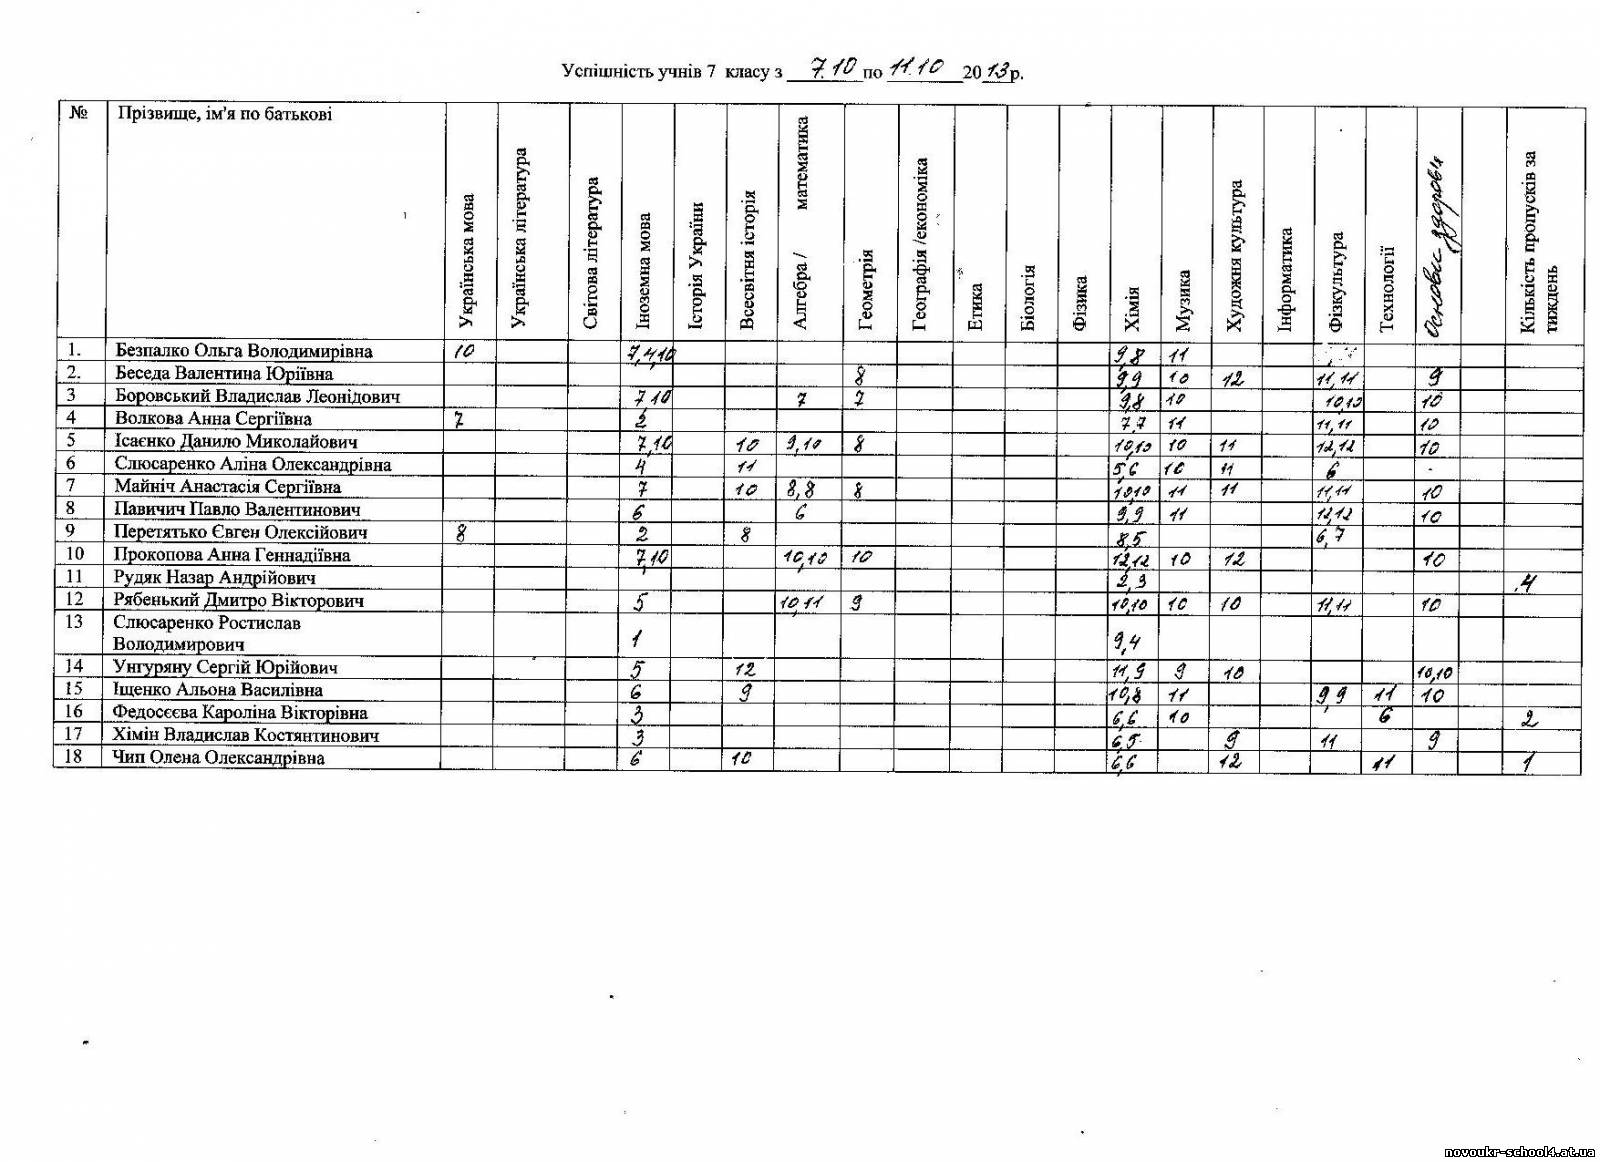 Успішність учнів 7 класу з 7.10 по 11.10 2013р.
№ Прізвище, ім'я по батькові Українська мова Українська література Світова література Іноземна мова Історія України Всесвітня історія Алгебра / математика Геометрія Географія /економіка Етика Біологія Фізика Хімія Музика Художня культура Інформатика Фізкультура Технології Основи здоров'я Кількість пропусків за тиждень
1. Безпалко Ольга Володимирівна 10 7,4,10 9,8 11
2. Беседа Валентина Юріївна 8 9,9 10 12 11,11 9
3 Боровський Владислав Леонідович 7 10 7 7 9,8 10 10,10 10
4 Волкова Анна Сергіївна 7 2 7,7 11 11,11 10
5 Ісаєнко Данило Миколайович 7,10 10 9,10 8 10,10 10 11 12,12 10
6 Слюсаренко Аліна Олександрівна 4 11 5,6 10 11 6
7 Майніч Анастасія Сергіївна 7 10 8,8 8 10,10 11 11 11,11 10
8 Павичич Павло Валентинович 6 6 9,9 11 12,12 10
9 Перетятько Євген Олексійович 8 2 8 8,5 6,7
10 Прокопова Анна Геннадіївна 7,10 10,10 10 12,12 10 12 10
11 Рудяк Назар Андрійович 2,3 4
12 Рябенький Дмитро Вікторович 5 10,11 9 10,10 10 10 11,11 10
13 Слюсаренко Ростислав
Володимирович 1 9,4
14 Унгуряну Сергій Юрійович 5 12 11,9 9 10 10,10
15 Іщенко Альона Василівна 6 9 10,8 11 9 9 11 10
16 Федосєєва Кароліна Вікторівна 3 6,6 10 6 2
17 Хімін Владислав Костянтинович 3 6,5 9 11 9
18 Чип Олена Олександрівна 6 10 6,6 12 11 1
novoukr-school4.at.ua